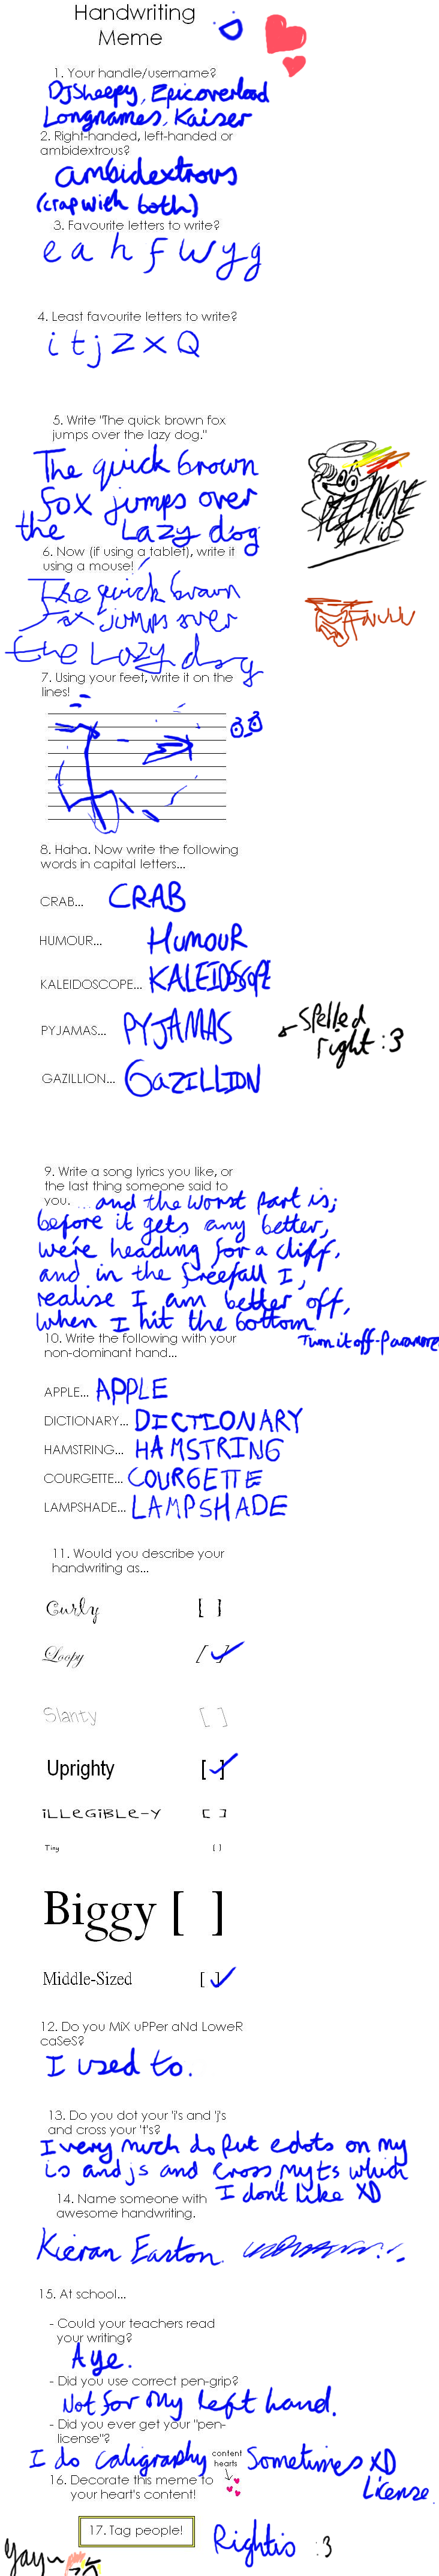 Handwriting
Meme
1. Your handle/username?
DJSheepy, Epicoverload
Longnames, Kaiser
2. Right-handed, left-handed or
ambidextrous?
ambidextrous
(crap with both)
3. Favourite letters to write?
e a h f w y g
4. Least favourite letters to write?
i t j z x Q
5. Write "The quick brown fox
jumps over the lazy dog."
The quick brown
fox jumps over
the Lazy dog
6. Now (if using a tablet), write it
using a mouse!
The quick brown
fox jumps over
the Lazy dog
7. Using your feet, write it on the
lines!
8. Haha. Now write the following
words in capital letters...
CRAB... CRAB
HUMOUR... HumouR
KALEIDOSCOPE... KALEIDOSCOPE
PYJAMAS... PYJAMAS
spelled
right :3
GAZILLION... GaZILLION
9. Write a song lyrics you like, or
the last thing someone said to
you. ...and the worst part is;
before it gets any better,
we're heading for a cliff,
and in the freefall I,
realise I am better off,
when I hit the bottom
Turn it off - Paramore
10. Write the following with your
non-dominant hand...
APPLE... APPLE
DICTIONARY... DICTIONARY
HAMSTRING... HAMSTRING
COURGETTE... COURGETTE
LAMPSHADE... LAMPSHADE
11. Would you describe your
handwriting as...
Curly [ ]
Loopy [ ]
Slanty [ ]
Uprighty [ ]
iLLeGiBLe-Y [ ]
Tiny [ ]
Biggy [ ]
Middle-Sized [ ]
12. Do you MiX uPPer aNd LoweR
caSeS?
I used to.
13. Do you dot your 'i's and 'j's
and cross your 't's?
I very much do put dots on my
is and js and cross my ts which
I don't like XD
14. Name someone with
awesome handwriting.
Kieran Easton.
15. At school...
- Could your teachers read
your writing?
Aye.
- Did you use correct pen-grip?
Not for my left hand.
- Did you ever get your "pen-
license"?
I do caligraphy Sometimes XD
License.
content
hearts
16. Decorate this meme to
your heart's content!
17. Tag people!
Rightio :3
yay~